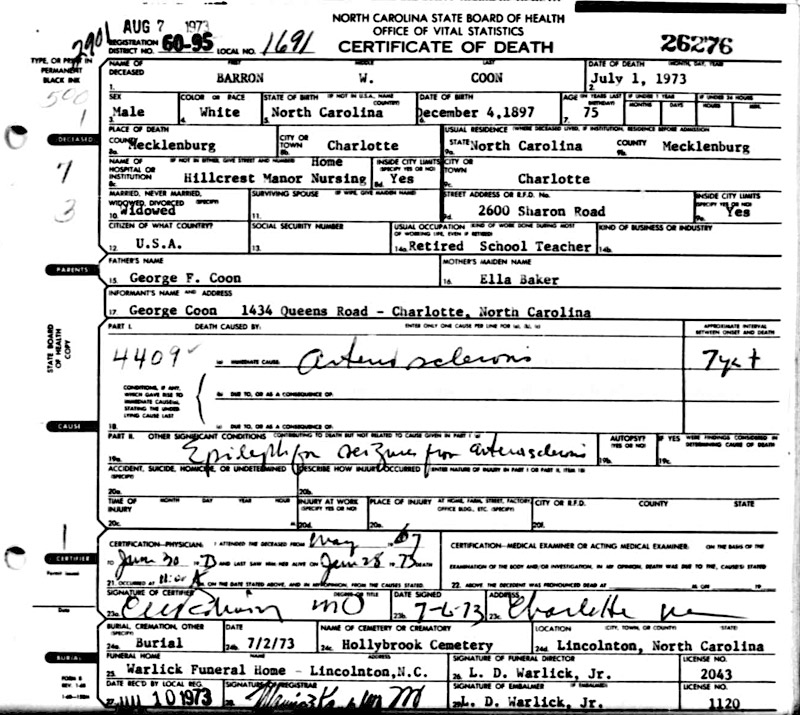 NORTH CAROLINA STATE BOARD OF HEALTH
OFFICE OF VITAL STATISTICS
CERTIFICATE OF DEATH
AUG 7 1973
2901
REGISTRATION DISTRICT NO. 60-95 LOCAL NO. 1691
26276
TYPE, OR PRINT IN PERMANENT BLACK INK
500
1
NAME OF DECEASED FIRST MIDDLE LAST DATE OF DEATH MONTH, DAY, YEAR
1. BARRON W. COON 2. July 1, 1973
SEX COLOR OR RACE STATE OF BIRTH (IF NOT IN U.S.A., NAME COUNTRY) DATE OF BIRTH AGE (IN YEARS LAST BIRTHDAY) IF UNDER 1 YEAR IF UNDER 24 HOURS
MONTHS DAYS HOURS MIN.
3. Male 4. White 5. North Carolina 6. December 4,1897 7. 75
DECEASED
PLACE OF DEATH CITY OR TOWN USUAL RESIDENCE (WHERE DECEASED LIVED, IF INSTITUTION, RESIDENCE BEFORE ADMISSION)
COUNTY 8a. Mecklenburg 8b. Charlotte STATE 9a. North Carolina COUNTY 9b. Mecklenburg
7
NAME OF HOSPITAL OR INSTITUTION IF NOT IN EITHER, GIVE STREET AND NUMBER INSIDE CITY LIMITS (SPECIFY YES OR NO) CITY OR TOWN
8c. Hillcrest Manor Nursing Home 8d. Yes 9c. Charlotte
3
MARRIED, NEVER MARRIED, WIDOWED, DIVORCED (SPECIFY) SURVIVING SPOUSE (IF WIFE, GIVE MAIDEN NAME) STREET ADDRESS OR R.F.D. No. INSIDE CITY LIMITS (SPECIFY YES OR NO)
10. Widowed 11. 9d. 2600 Sharon Road 9e. Yes
CITIZEN OF WHAT COUNTRY? SOCIAL SECURITY NUMBER USUAL OCCUPATION (KIND OF WORK DONE DURING MOST OF WORKING LIFE, EVEN IF RETIRED) KIND OF BUSINESS OR INDUSTRY
12. U.S.A. 13. 14a. Retired School Teacher 14b.
PARENTS
FATHER'S NAME MOTHER'S MAIDEN NAME
15. George F. Coon 16. Ella Baker
INFORMANT'S NAME AND ADDRESS
17. George Coon 1434 Queens Road - Charlotte, North Carolina
STATE BOARD OF HEALTH COPY
PART I. DEATH CAUSED BY: ENTER ONLY ONE CAUSE PER LINE FOR (a), (b), (c) APPROXIMATE INTERVAL BETWEEN ONSET AND DEATH
4409 (a) IMMEDIATE CAUSE: arteriosclerosis 7 yrs +
CONDITIONS, IF ANY, WHICH GAVE RISE TO IMMEDIATE CAUSE(a), STATING THE UNDERLYING CAUSE LAST
(b) DUE TO, OR AS A CONSEQUENCE OF:
18. (c) DUE TO, OR AS A CONSEQUENCE OF:
CAUSE
PART II. OTHER SIGNIFICANT CONDITIONS CONTRIBUTING TO DEATH BUT NOT RELATED TO CAUSE GIVEN IN PART I (a) AUTOPSY? (YES OR NO) IF YES WERE FINDINGS CONSIDERED IN DETERMINING CAUSE OF DEATH
19a. seizures from arteriosclerosis 19b. 19c.
ACCIDENT, SUICIDE, HOMICIDE, OR UNDETERMINED (SPECIFY) DESCRIBE HOW INJURY OCCURRED (ENTER NATURE OF INJURY IN PART I OR PART II, ITEM 18)
20a. 20b.
TIME OF INJURY MONTH DAY YEAR HOUR INJURY AT WORK (SPECIFY YES OR NO) PLACE OF INJURY AT HOME, FARM, STREET, FACTORY, OFFICE BLDG., ETC. (SPECIFY) CITY OR R.F.D. COUNTY STATE
20c. M 20d. 20e. 20f.
1
CERTIFIER
CERTIFICATION-PHYSICIAN: I ATTENDED THE DECEASED FROM May 1967
TO June 30 1973 AND LAST SAW HIM/HER ALIVE ON June 28 1973 DEATH
21. OCCURRED AT M. ON THE DATE STATED ABOVE, AND IN MY OPINION, FROM THE CAUSES STATED.
CERTIFICATION-MEDICAL EXAMINER OR ACTING MEDICAL EXAMINER: ON THE BASIS OF THE
EXAMINATION OF THE BODY AND/OR INVESTIGATION, IN MY OPINION, DEATH WAS DUE TO THE CAUSE(S) STATED
22. ABOVE. THE DECEDENT WAS PRONOUNCED DEAD AT M ON 19
Permit Issued
Date
SIGNATURE OF CERTIFIER DEGREE OR TITLE DATE SIGNED ADDRESS
23a. MD 23b. 7-6-73 23c. Charlotte NC
BURIAL
BURIAL, CREMATION, OTHER (SPECIFY) DATE NAME OF CEMETERY OR CREMATORY LOCATION (CITY, TOWN, OR COUNTY) (STATE)
24a. Burial 24b. 7/2/73 24c. Hollybrook Cemetery 24d. Lincolnton, North Carolina
FUNERAL HOME NAME ADDRESS SIGNATURE OF FUNERAL DIRECTOR LICENSE NO.
25. Warlick Funeral Home - Lincolnton,N.C. 26. L. D. Warlick, Jr. 2043
FORM 8
DATE REC'D BY LOCAL REG. SIGNATURE OF REGISTRAR SIGNATURE OF EMBALMER (IF EMBALMED) LICENSE NO.
27. JUL 10 1973 28. 29. L. D. Warlick, Jr. 1120